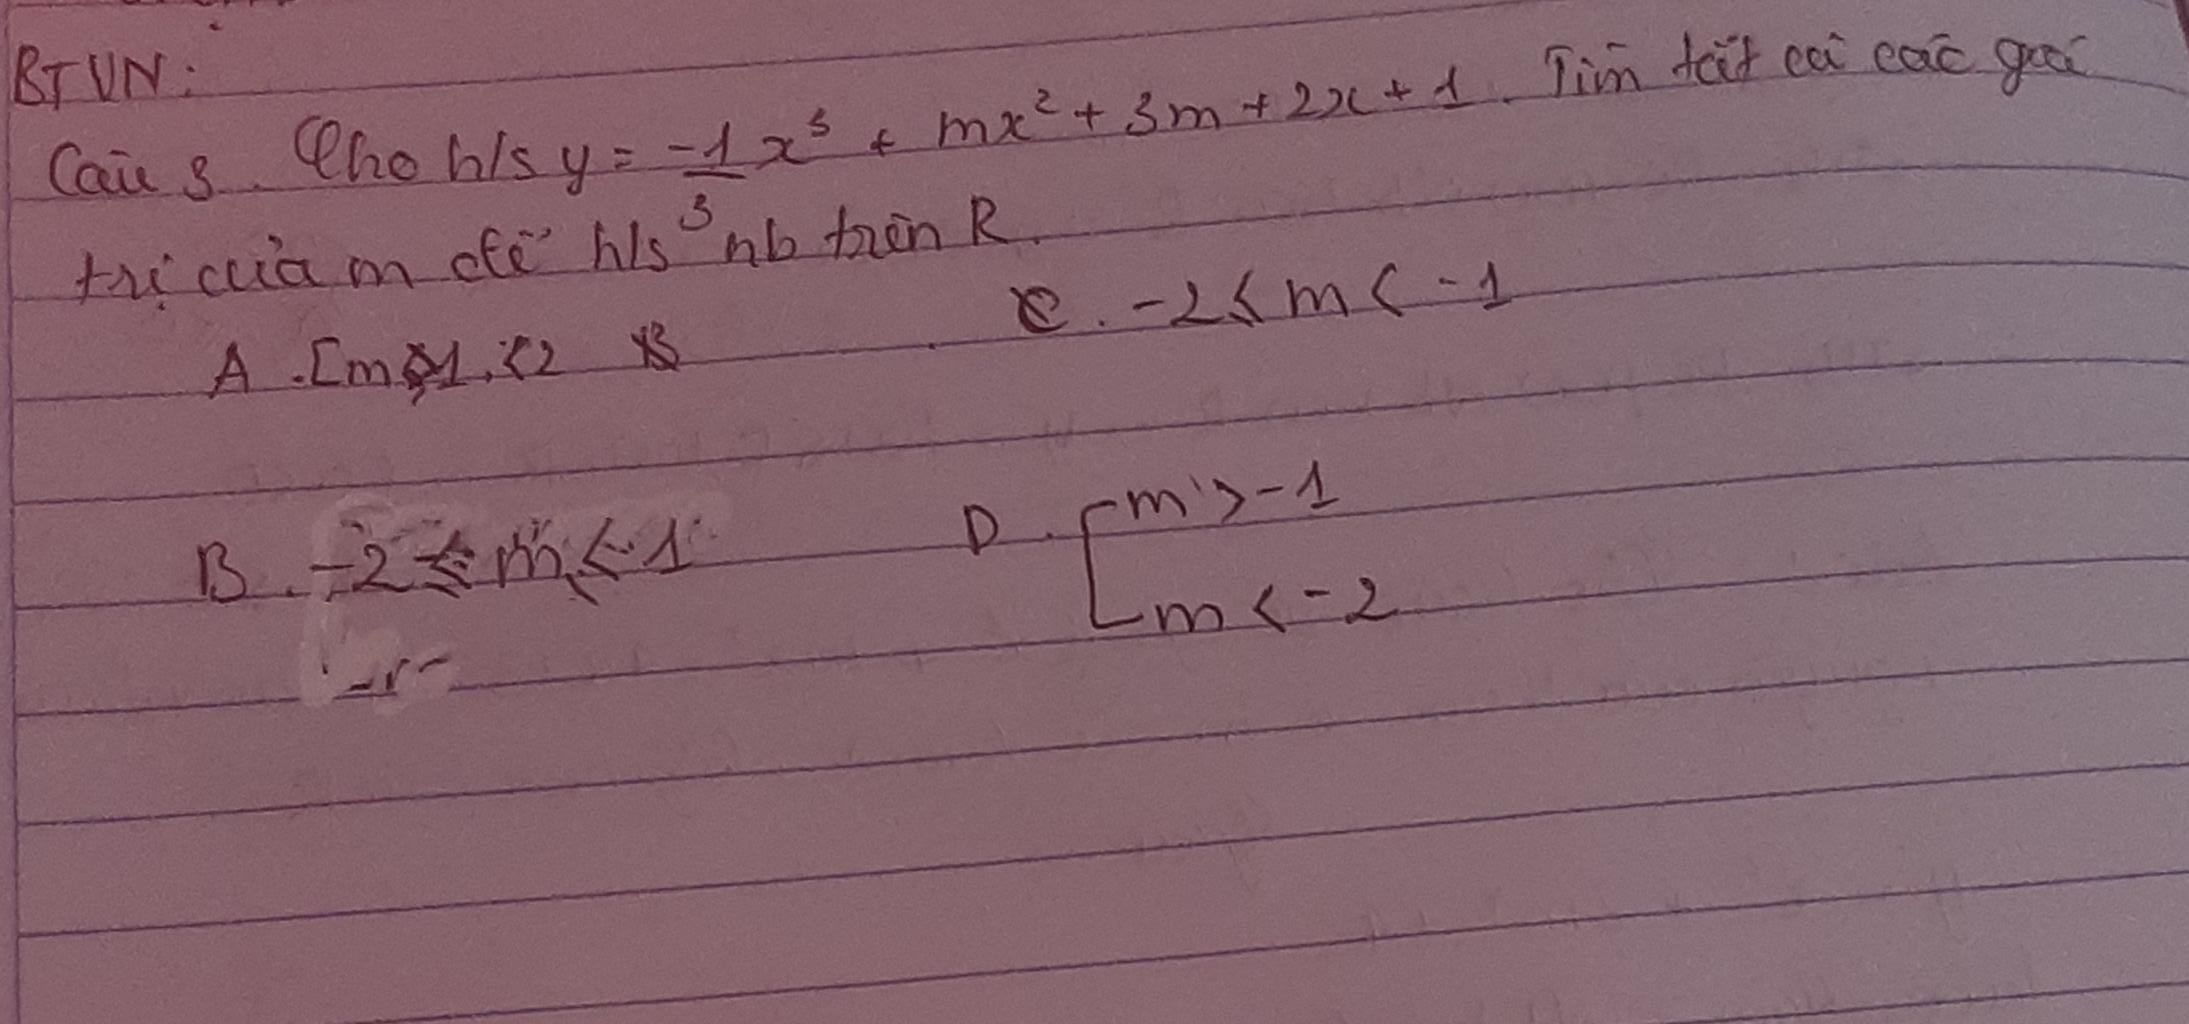 BTVN:
Câu 3. Cho h/s y = -1/3 x³ + mx² + 3m + 2x + 1. Tìm tất cả các giá
trị của m để h/s nb trên R.
A. [m 1, 2 B
C. -2 ≤ m < -1
B. -2 ≤ m ≤ -1
D. [ m > -1
m < -2